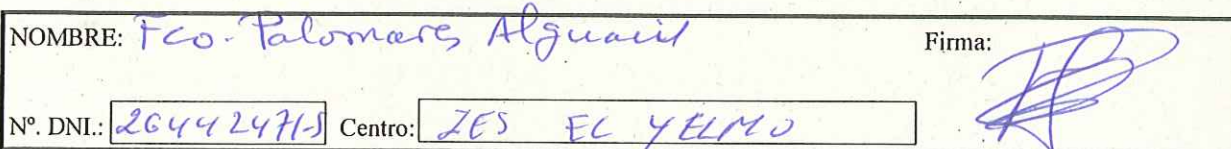 NOMBRE: Fco. Palomares Alguacil Firma:
Nº. DNI.: 26442471-S Centro: IES EL YELMO